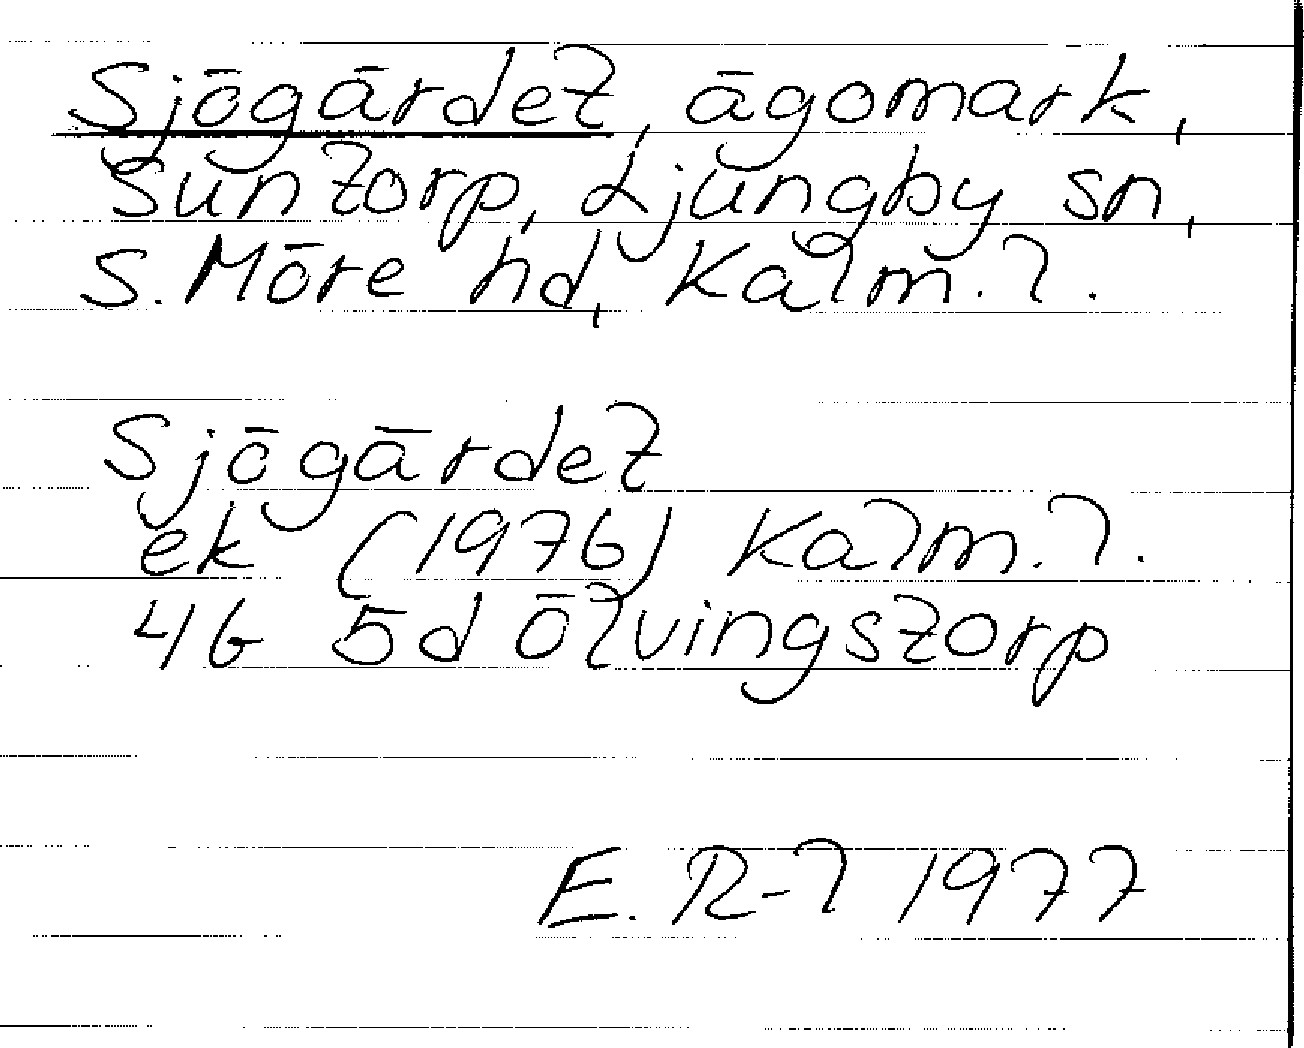 Sjögärdet, ägomark,
Suntorp, Ljungby sn,
S. Möre hd, Kalm. l.
Sjögärdet
ek (1976) Kalm. l.
4G 5d Ölvingstorp
E. R-l 1977